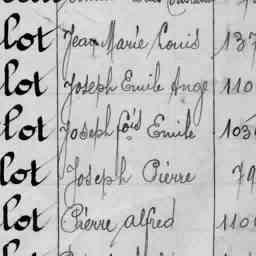 lot Jean Marie Louis 137
lot Joseph Emile Ange 110
lot Joseph fois Emile 103
lot Joseph Pierre 79
lot Pierre alfred 110